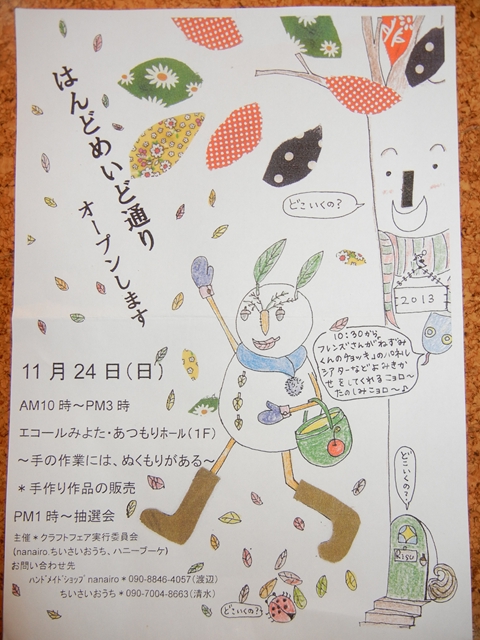 はんどめいど通り
オープンします
どこいくの?
2013
10:30から
フレンズさんがねずみ
くんのチョッキ」のパネル
シアターなどよみきか
せをしてくれるニョロ〜
たのしみニョロ〜♪
11月24日(日)
AM10時〜PM3時
エコールみよた・あつもりホール(1F)
〜手の作業には、ぬくもりがある〜
*手作り作品の販売
PM1時〜抽選会
主催*クラフトフェア実行委員会
(nanairo.ちいさいおうち、ハニーブーケ)
お問い合わせ先
ハンドメイドショップnanairo*090-8846-4057(渡辺)
ちいさいおうち*090-7004-8663(清水)
どこいくの?
どこいくの?